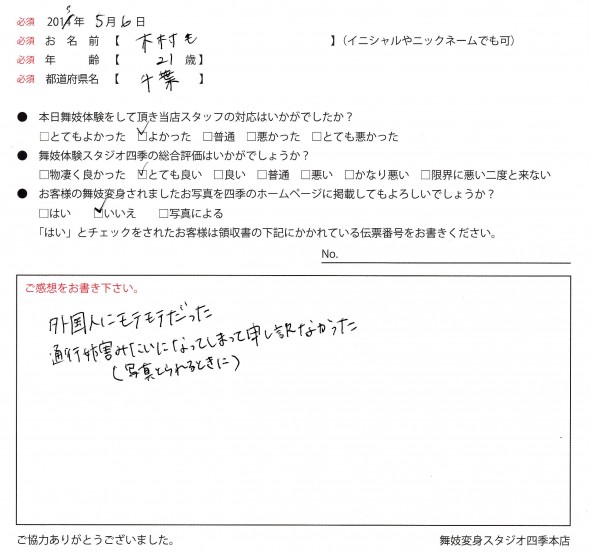 必須 2015年 5月 6日
必須 お名前【 木村も 】(イニシャルやニックネームでも可)
必須 年 齢【 21 歳】
必須 都道府県名【 千葉 】
● 本日舞妓体験をして頂き当店スタッフの対応はいかがでしたか?
□とてもよかった ☑よかった □普通 □悪かった □とても悪かった
● 舞妓体験スタジオ四季の総合評価はいかがでしょうか?
□物凄く良かった ☑とても良い □良い □普通 □悪い □かなり悪い □限界に悪い二度と来ない
● お客様の舞妓変身されましたお写真を四季のホームページに掲載してもよろしいでしょうか?
□はい ☑いいえ □写真による
「はい」とチェックをされたお客様は領収書の下記にかかれている伝票番号をお書きください。
No.
ご感想をお書き下さい。
外国人にモテモテだった
通行妨害みたいになってしまって申し訳なかった
(写真とられるときに)
ご協力ありがとうございました。 舞妓変身スタジオ四季本店